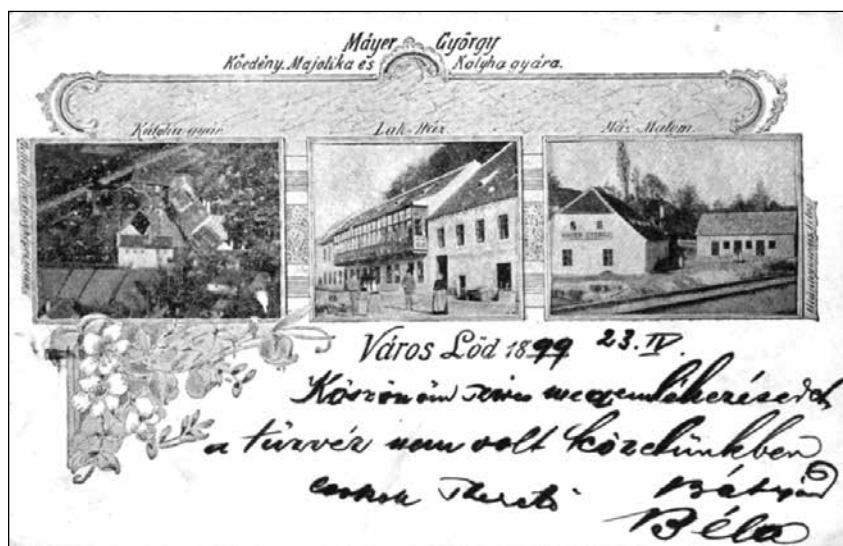 Máyer György
Kőedény, Majolika és Kályha gyára.
Kályha gyár.
Lak-Ház
Máz-Malom.
MAYER GYÖRGY
Város Lőd 1899 23. IV.
Köszönöm szives megemlékezésedet,
a tűzvéz nem volt közelünkben
csokol Szerető Bátyád
Béla